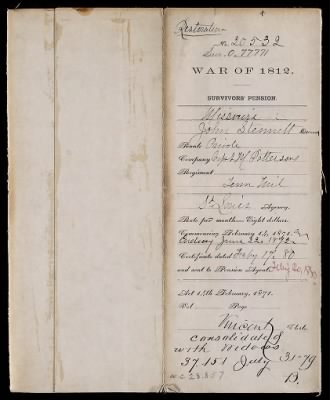 Restoration
No. 20532
Sur. O.77771
WAR OF 1812.
SURVIVORS' PENSION.
Missouri
John Stennett
Rank Private
Company Capt. Pattersons
Regiment
Tenn Mil
St Louis Agency.
Rate per month—Eight dollars.
Commencing February 14, 1871.
Ending June 22, 1872.
Certificate dated Feby 17, 80
and sent to Pension Agent
Act 14th February, 1871.
Vol. Page
Vincent Clerk
consolidated
with Widows
37.151 July 31-79
B.